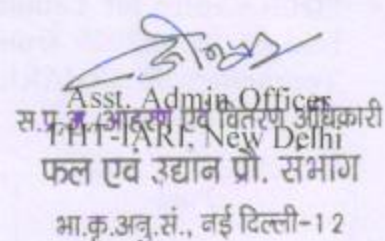 Asst. Admin Officer
स.प्र.अ./आहरण एवं वितरण अधिकारी
FHT-IARI, New Delhi
फल एवं उद्यान प्रौ. संभाग
भा.कृ.अनु.सं., नई दिल्ली-12